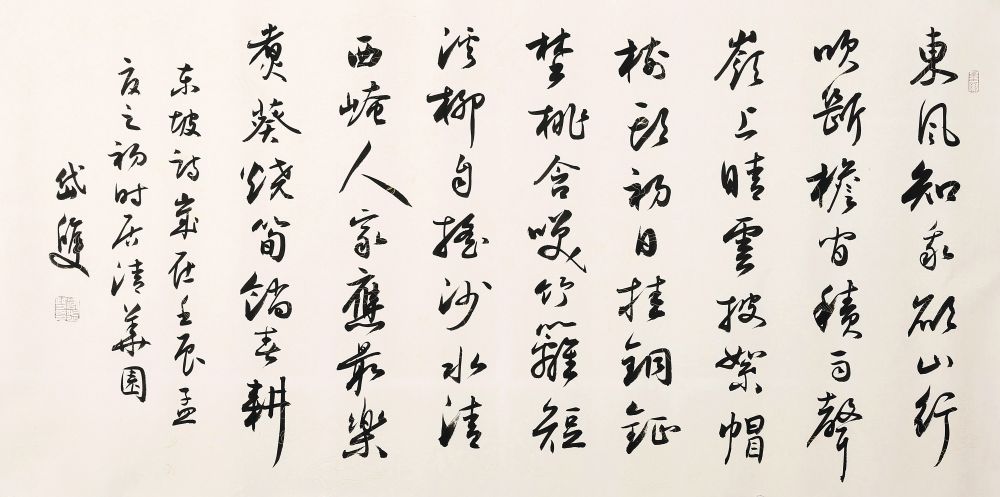 東風知我欲山行
吹斷檐間積雨聲
嶺上晴雲披絮帽
樹頭初日挂銅鉦
埜桃含笑竹籬短
溪柳自搖沙水清
西崦人家應最樂
煑葵燒筍餉春耕
东坡詩歲在壬辰孟
夜之初时居清華園